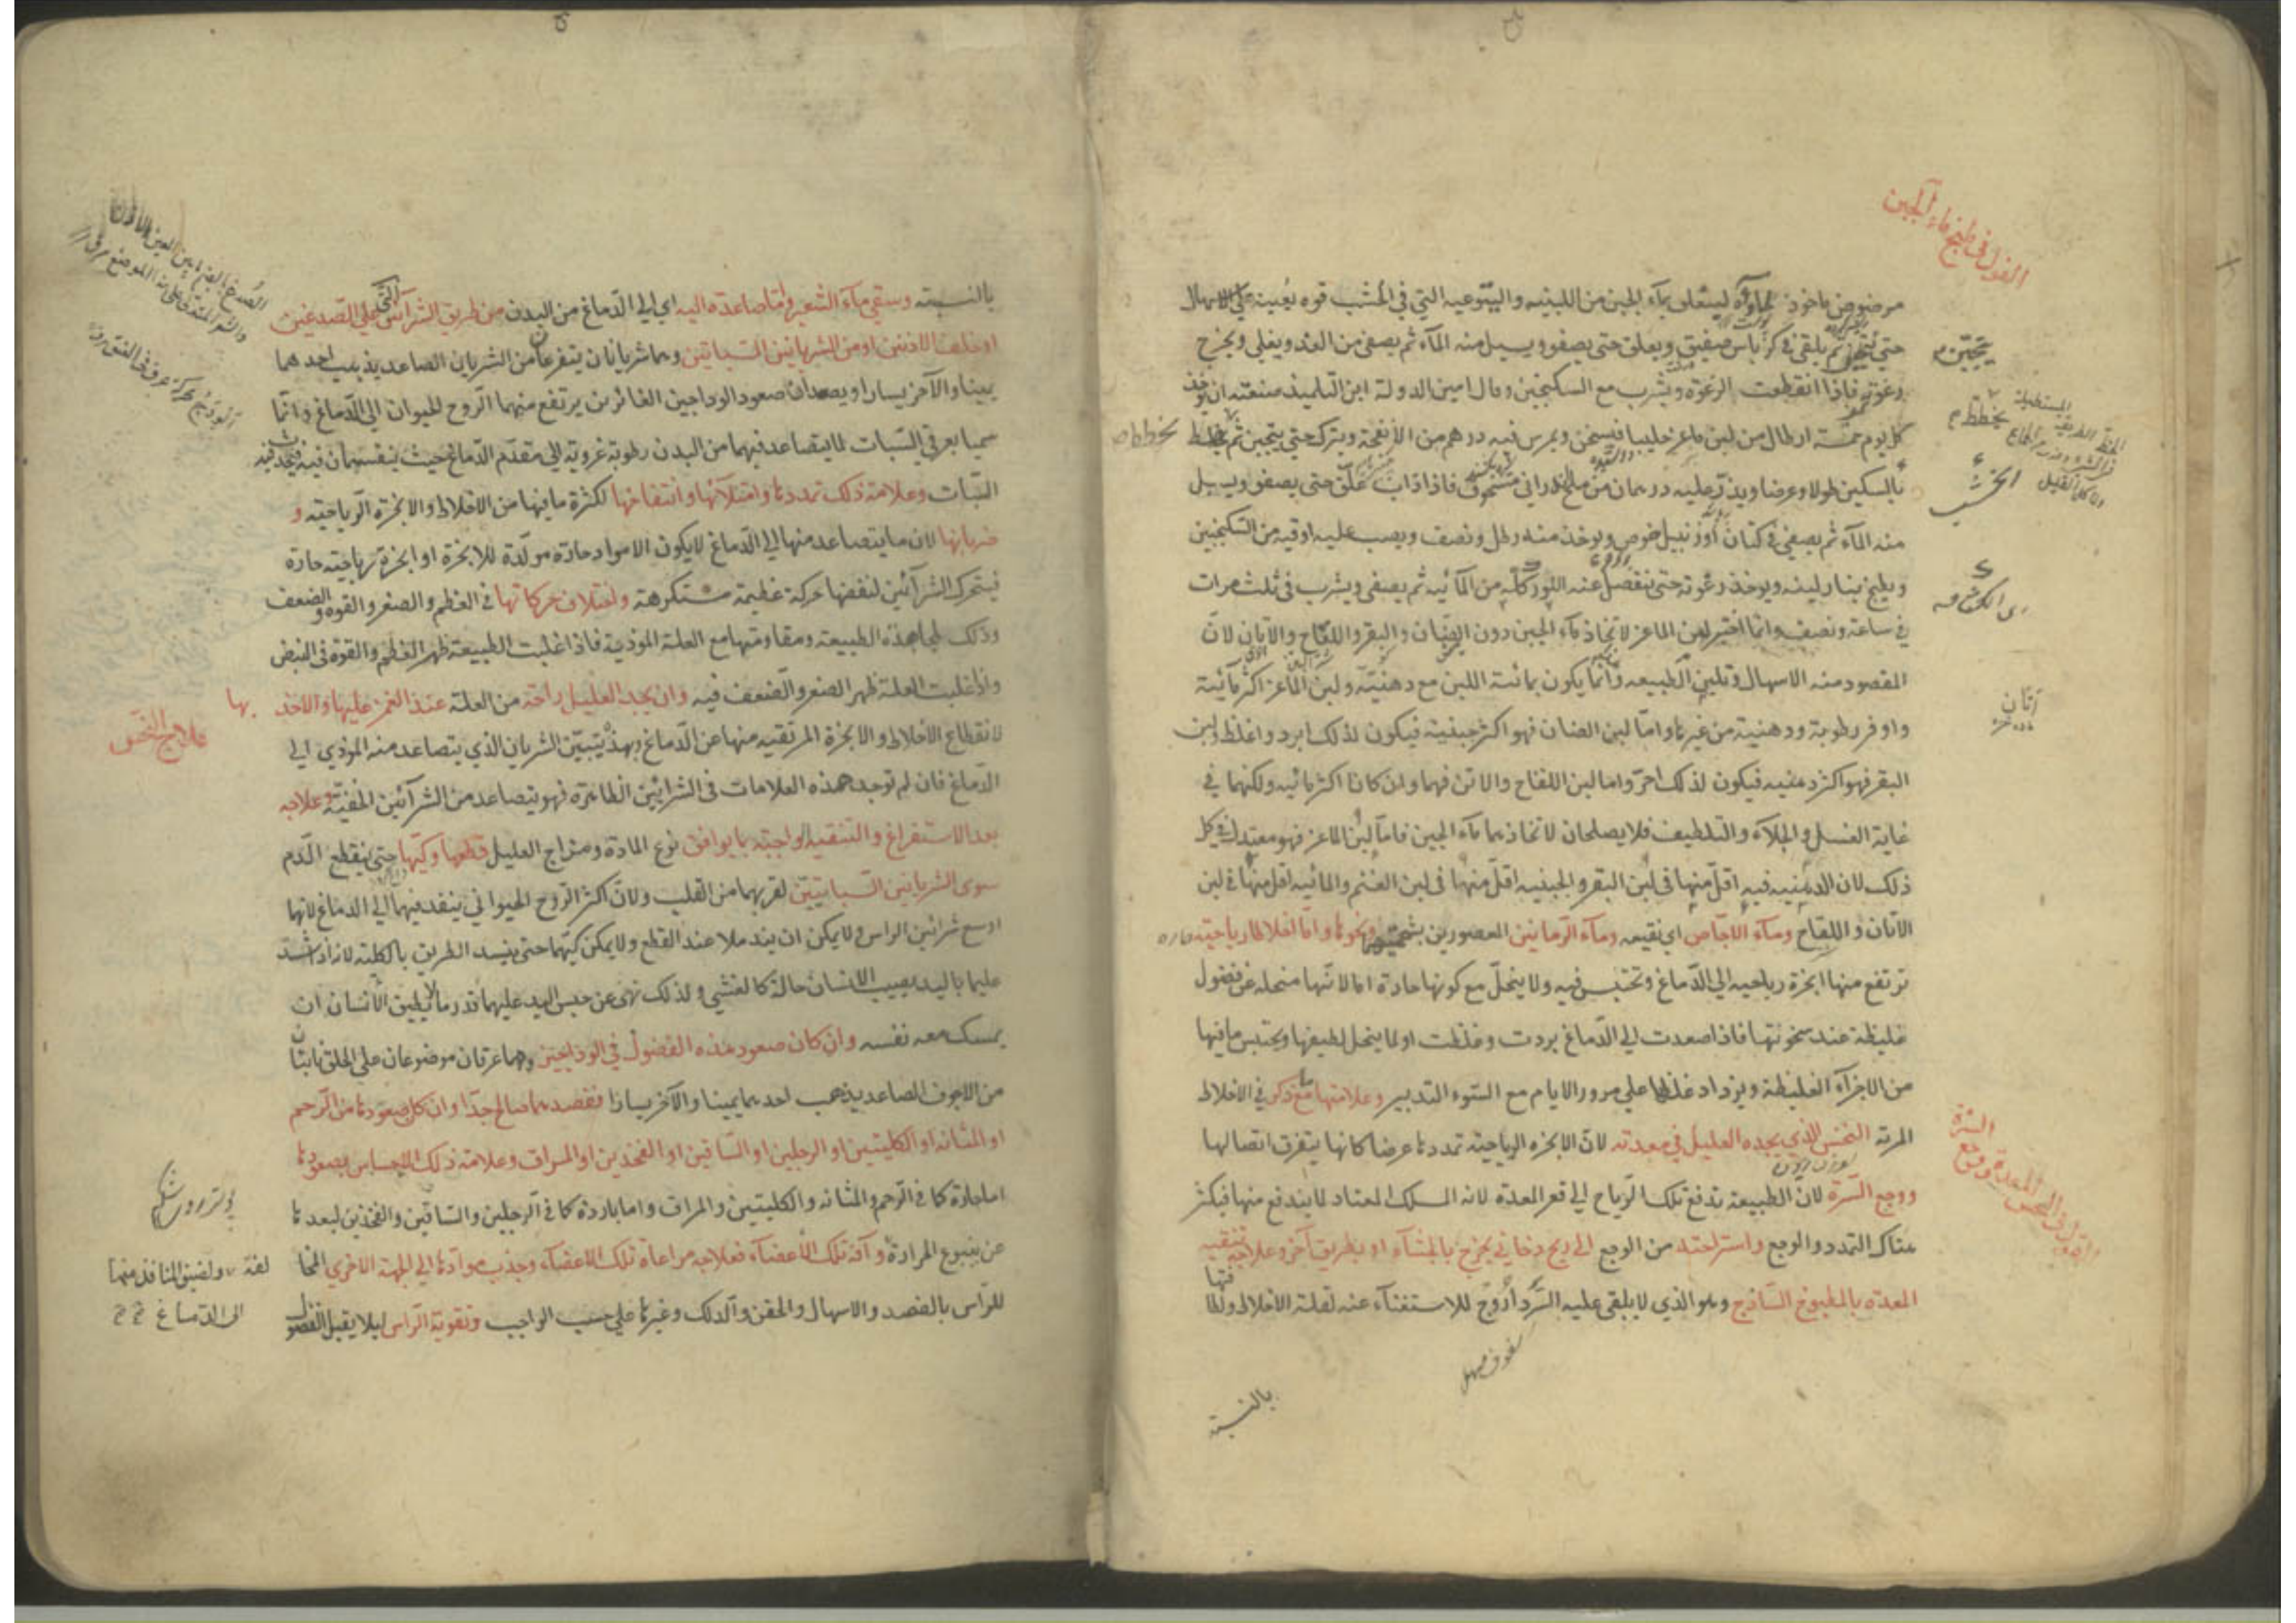 القول في طبخ ماء الجبن
مرضوض ماخوذ لحاؤه ليتعلق بماء الجبن من اللبنيه واليتوعيه التي في الخشب قوه يعينه علي الاسهال
حتي يلقي في كرباس صفيق ويعلق حتي يصفو ويسيل منه المآء ثم يصفي من الغد ويغلي ويخرج
رغوته فاذا انقطعت الرغوة ويشرب مع السكنجبين وقال امين الدولة ابن التلميذ صنعته ان يوخذ
كل يوم خمسة ارطال من لبن ماعز حليبا فيسخن ويمرس فيه درهم من الأنفحة ويترك حتي يتجبن ثم يخطط
بالسكين طولا وعرضا ويذر عليه درهمان من ملح اندراني مسحوق فاذا ذاب علق حتي يصفو ويسيل
منه المآء ثم يصفي في كتان او زنبيل خوص ويوخذ منه رطل ونصف ويصب عليه اوقيه من السكنجبين
ويطبخ بنار لينه ويوخذ رغوته حتي تنفصل عنه اللور كله من المآئيه ثم يصفي ويشرب في ثلث مرات
في ساعة ونصف وانما اختير لبن الماعز لاتخاذ مآء الجبن دون الضان والبقر واللقاح والآتان لان
المقصود منه الاسهال وتليين الطبيعه وانما يكون بمائية اللبن مع دهنيته ولبن الماعز اكثر مآئية
واوفر رطوبة ودهنية من غيرها واما لبن الضان فهو اكثر جبنية فيكون لذلك ابرد واغلظ ولبن
البقر فهو اكثر دهنيه فيكون لذلك احر واما لبن اللقاح والاتن فهما وان كانا اكثر مائيه ولكنهما في
غاية الغسل والجلآء والتلطيف فلا يصلحان لاتخاذهما مآء الجبن فاما لبن الماعز فهو معتدل في كل
ذلك لان الدهنيه فيه اقل منها في لبن البقر والجبنيه اقل منها في لبن الغنم والمائيه اقل منها في لبن
الاتان واللقاح ومآء الاجاص اي نقيعه ومآء الرمانين المعصورين بشحمهما ونحوها واما اخلاط رياحيه حاره
ترتفع منها ابخرة رياحيه الي الدماغ وتحتبس فيه ولا ينحل مع كونها حادة اما لانها منحله عن فضول
غليظة عند سخونتها فاذا صعدت الي الدماغ بردت وغلظت او لما ينحل لطيفها ويحتبس ما فيها
من الاجزآء الغليظة ويزداد غلظا علي مرور الايام مع السوء التدبير وعلامتها مع ما ذكر في الاخلاط
المرية النخس الذي يجده العليل في معدته لان الابخره الرياحية تمددها عرضا كانها يتفرق اتصالها
ووجع السرة لان الطبيعة تدفع تلك الرياح الي قعر المعدة لانه المسلك المعتاد لما يندفع منها فيكثر
هناك التمدد والوجع واستراحته من الوجع الي ريح دخاني يخرج بالجشآء او بطريق آخر وعلاجه تنقيه
المعدة بالمطبوخ الساذج وهو الذي لا يلقي عليه السرد اروج للاستغنآء عنه لقلة الاخلاط ولطافتها
سفوف مسهل
بالنسبة
يتجبن
يخطط
الخشب
اتان
ماده خر
بالنسبة وسقي مآء الشعير واما صاعدة اليه اي الي الدماغ من البدن من طريق الشرآئين التي علي الصدغين
او خلف الاذنين او من الشريانين السباتين وهما شريانان يتفرعان من الشريان الصاعد يذهب احدهما
يمينا والآخر يسارا ويصعدان صعود الوداجين الغائرين يرتفع منهما الروح الحيوان الي الدماغ وانما
سميا بعرقي السبات لما يتصاعد فيهما من البدن رطوبة غروية الي مقدم الدماغ حيث ينقسمان فيه فيحدث فيه
السبات وعلامة ذلك تمددها وامتلآئها وانتفاخها لكثرة ما فيها من الاخلاط والابخرة الرياحيه و
ضربانها لان ما يتصاعد منها الي الدماغ لا يكون الا مواد حادة مولدة للابخرة او ابخرة رياحية حارة
فيتحرك الشرآئين لنفضها حركة عظيمة مستكرهة واختلاف حركاتها في العظم والصغر والقوه والضعف
وذلك لمجاهدة الطبيعة ومقاومتها مع العلة الموذية فاذا غلبت الطبيعة ظهر العظم والقوة في النبض
واذا غلبت العلة ظهر الصغر والضعف فيه وان يجد العليل راحة من العلة عند الغمز عليها والاخذ بها
لانقطاع الاخلاط والابخرة المرتقيه منها عن الدماغ وبهذا يتبين الشريان الذي يتصاعد منه الموذي الي
الدماغ فان لم توجد هذه العلامات في الشرايين الظاهرة فهو يتصاعد من الشرآئين الخفية وعلاجه
بعد الاستفراغ والتنقية الواجبة بما يوافق نوع المادة ومزاج العليل قطعها وكيها حتي ينقطع الدم
سوي الشريانين السباتيين لقربهما من القلب ولان اكثر الروح الحيواني ينفد فيهما الي الدماغ لانهما
اوسع شرائين الراس ولا يمكن ان يندملا عند القطع ولا يمكن كيهما حتي ينسد الطريق بالكلية لانه اذا شد
عليهما باليد يصيب الانسان حالة كالغشي ولذلك نهي عن حبس اليد عليهما قدر ما لا يطيق الانسان ان
يمسك معه نفسه وان كان صعود هذه الفضول في الوداجين وهما عرقان موضوعان علي الحلق نابتان
من الاجوف الصاعد يذهب احدهما يمينا والآخر يسارا ففصدهما صالح جدا وان كان صعودها من الرحم
او المثانه او الكليتين او الرجلين او الساقين او الفخذين او المراق وعلامة ذلك الاحساس بصعودها
اما حارة كما في الرحم والمثانه والكليتين والمراق واما باردة كما في الرجلين والساقين والفخذين لبعدها
عن ينبوع الحرارة وآفة تلك الاعضآء فعلاجه مراعاة تلك الاعضآء وجذب موادها الي الجهة الاخري المخالفة
للراس بالفصد والاسهال والحقن والدلك وغيرها علي حسب الواجب وتقوية الراس ليلا يقبل الفضول
علاج النخس
ولضيق المنافذ منها
الي الدماغ